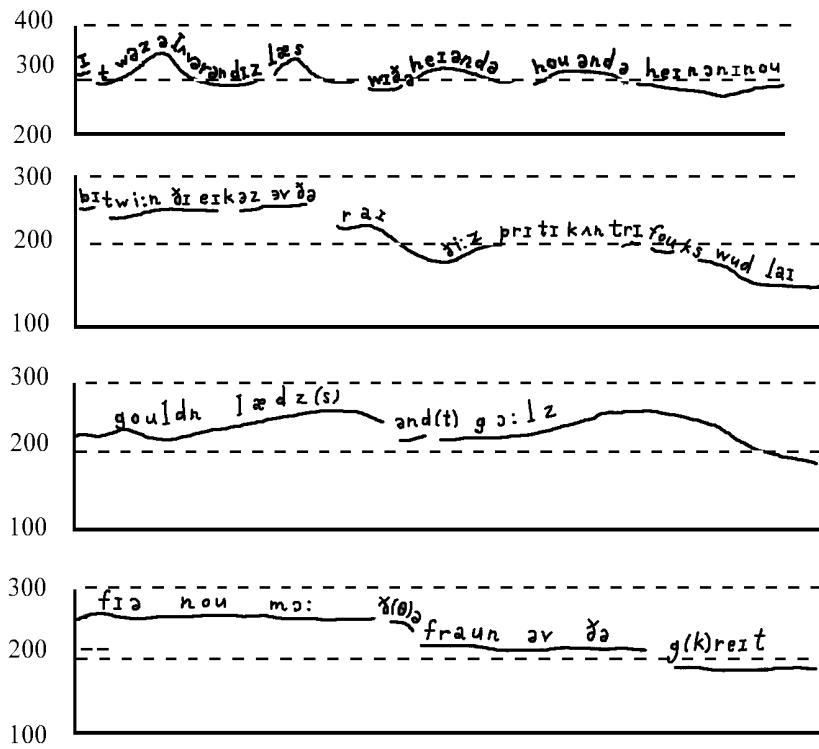 400
ɪt wəz ə lʌvərəndɪz læs wɪðə heɪəndə hou əndə heɪnənɪnou
300
200
300
bɪtwi:n ðɪ eɪkəz əv ðə raɪ ði:z prɪtɪ kʌntrɪ fouks wud laɪ
200
100
300
gouldn lædz(s) ənd(t) gɔ:lz
200
100
300
fɪə nou mɔ: ð(θ)ə fraun əv ðə g(k)reɪt
200
100